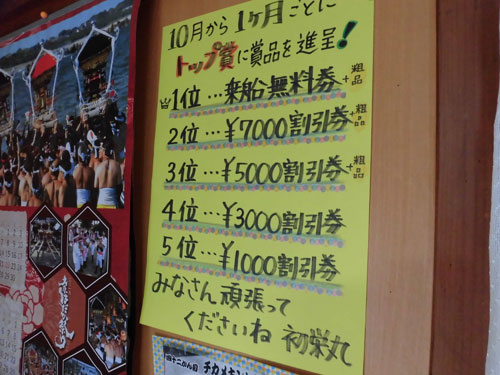 10月から1ヶ月ごとに
トップ賞に賞品を進呈!
1位…乗船無料券+粗品
2位…¥7000割引券+粗品
3位…¥5000割引券+粗品
4位…¥3000割引券
5位…¥1000割引券
みなさん頑張って
くださいね 初栄丸